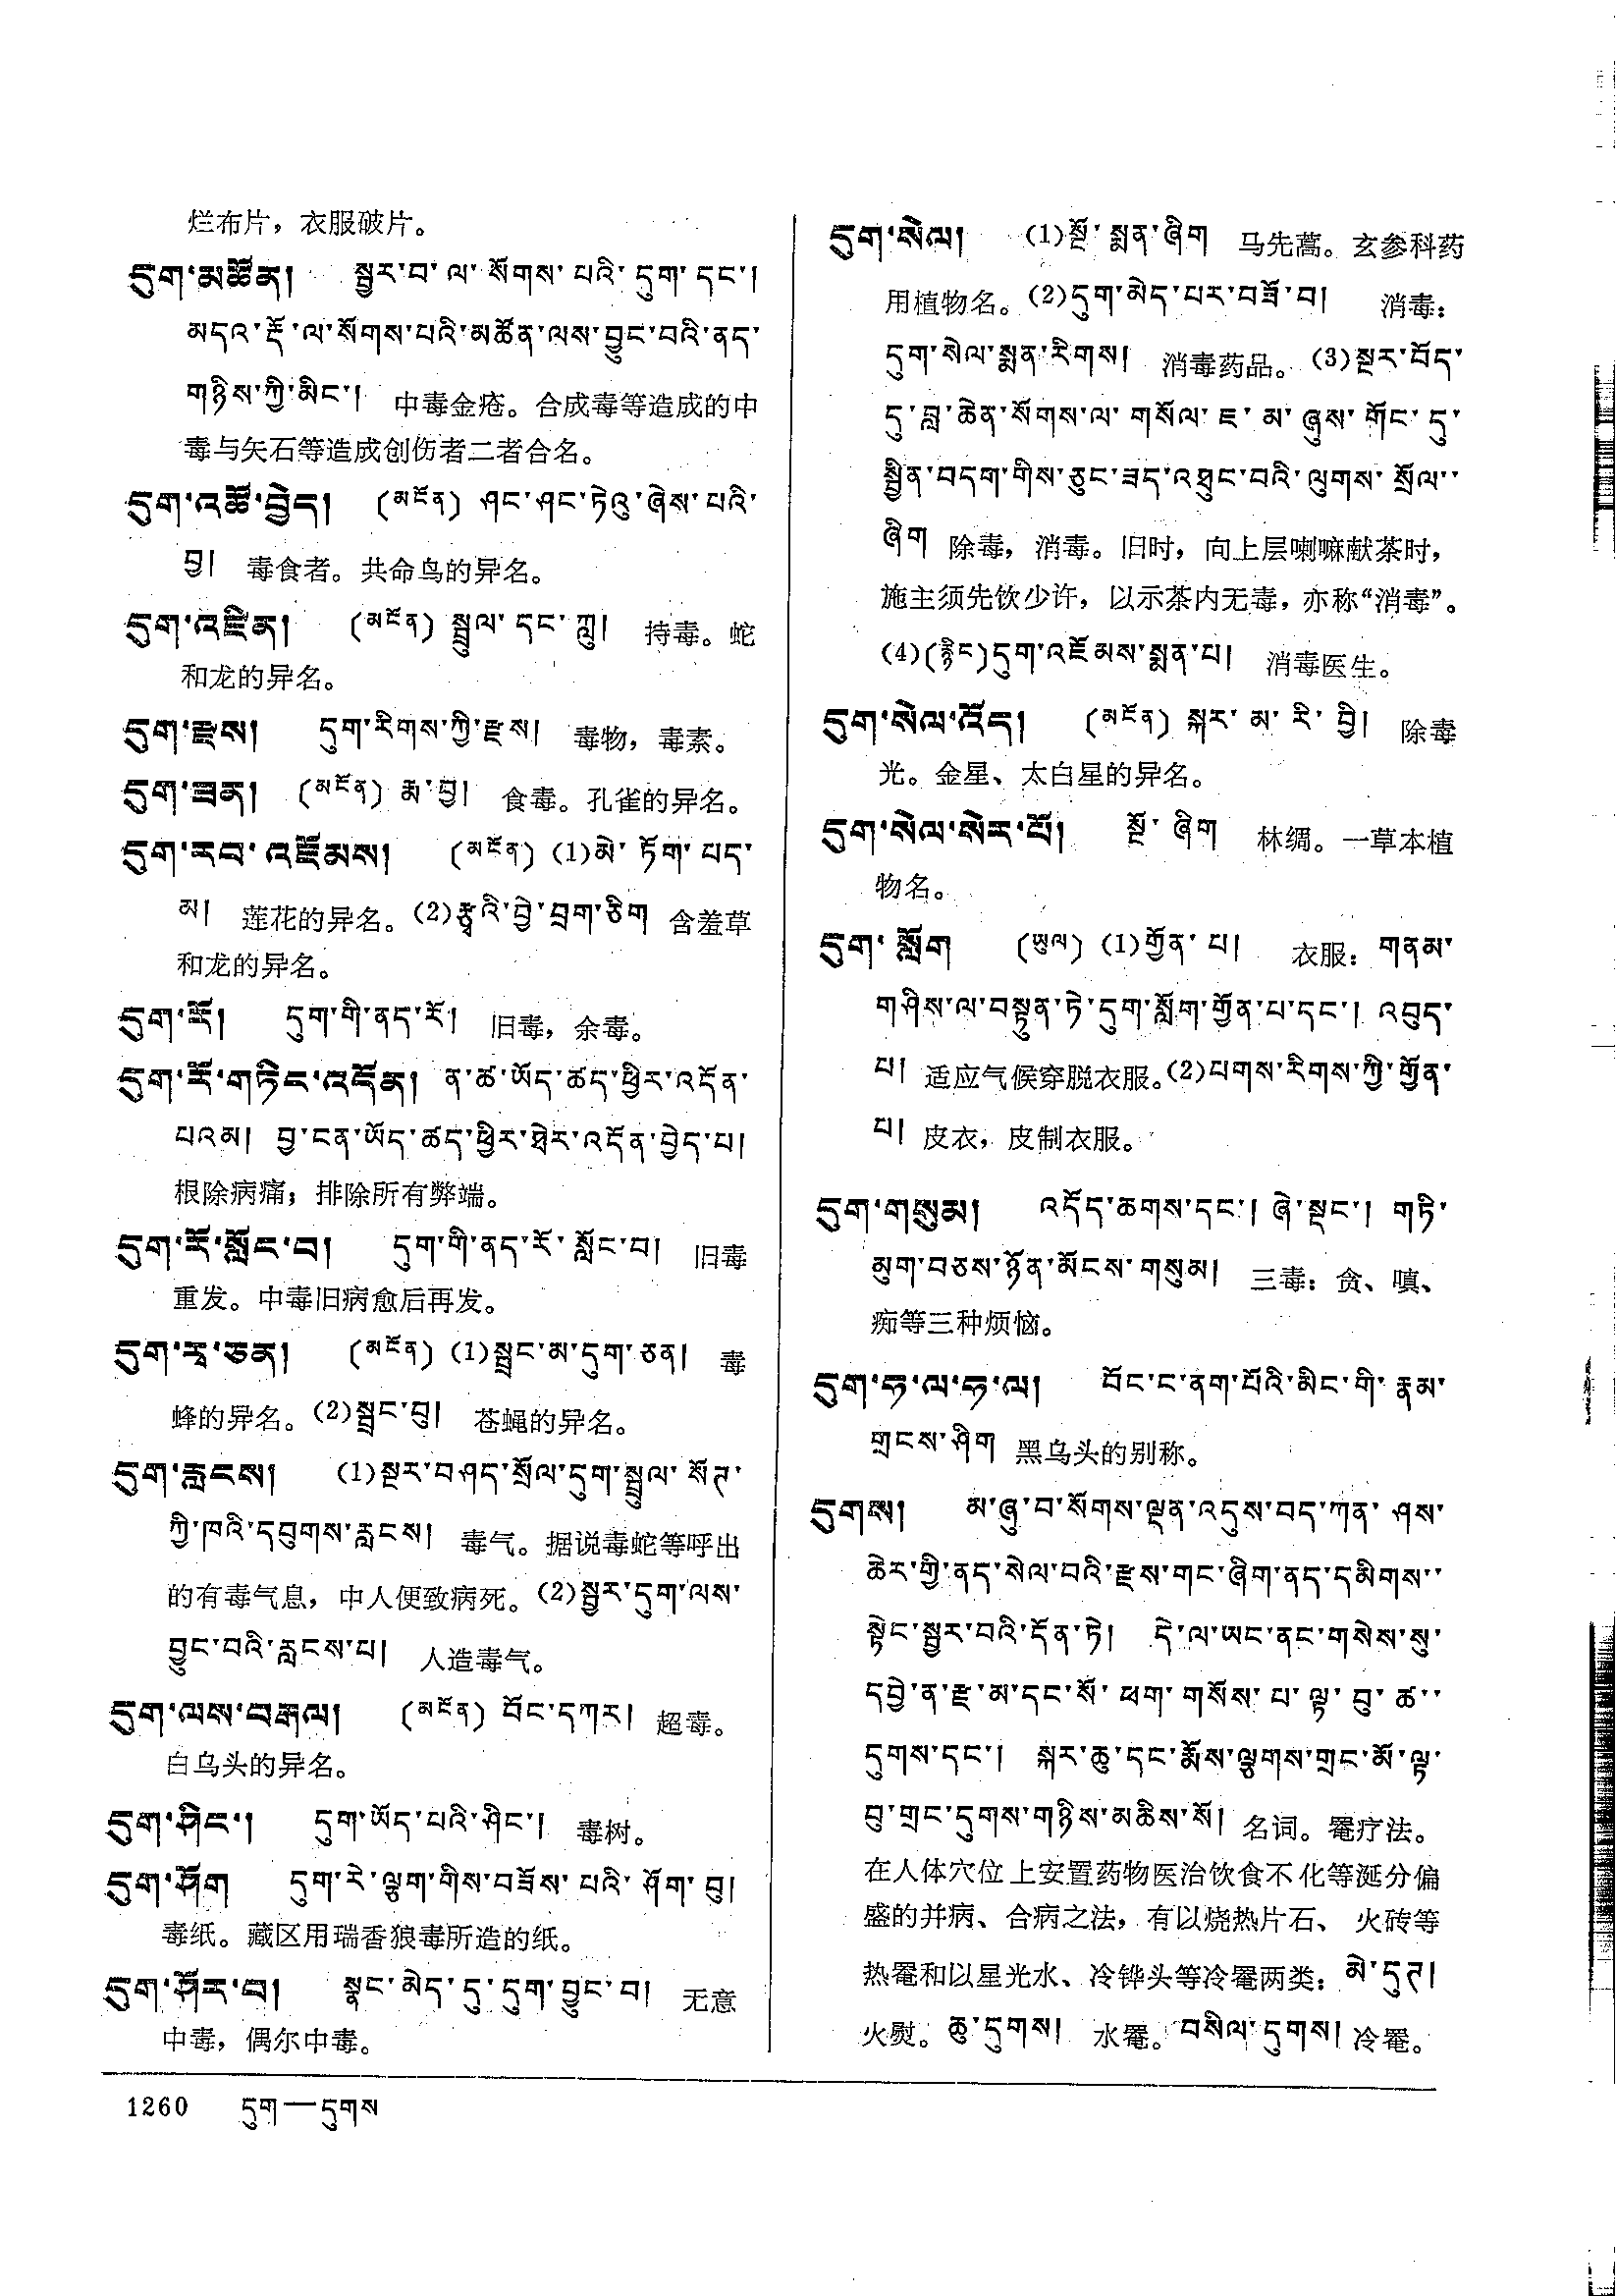 烂布片，衣服破片。
དུག་མཚོན། སྦྱར་བ་ལ་སོགས་པའི་དུག་དང་།
མདའ་རྡོ་ལ་སོགས་པའི་མཚོན་ལས་བྱུང་བའི་ནད་
གཉིས་ཀྱི་མིང་། 中毒金疮。合成毒等造成的中
毒与矢石等造成创伤者二者合名。
དུག་འཚོ་བྱེད། (མངོན) ཤང་ཤང་ཏེའུ་ཞེས་པའི་
བྱ། 毒食者。共命鸟的异名。
དུག་འཛིན། (མངོན) སྦྲུལ་དང་ཀླུ། 持毒。蛇
和龙的异名。
དུག་རྫས། དུག་རིགས་ཀྱི་རྫས། 毒物，毒素。
དུག་ཟན། (མངོན) རྨ་བྱ། 食毒。孔雀的异名。
དུག་རབ་འཇོམས། (མངོན) (1)མེ་ཏོག་པད་
མ། 莲花的异名。(2)རྩྭའི་བྱེ་བྲག་ཅིག 含羞草
和龙的异名。
དུག་རོ། དུག་གི་ནད་རོ། 旧毒，余毒。
དུག་རོ་གཏིང་འདོན། ན་ཚ་ཡོད་ཚད་ཕྱིར་འདོན་
པའམ། བྱ་ངན་ཡོད་ཚད་ཕྱིར་ཐེར་འདོན་བྱེད་པ།
根除病痛；排除所有弊端。
དུག་རོ་སློང་བ། དུག་གི་ནད་རོ་སློང་བ། 旧毒
重发。中毒旧病愈后再发。
དུག་རྭ་ཅན། (མངོན) (1)སྦྲང་མ་དུག་ཅན། 毒
蜂的异名。(2)སྦྲང་བུ། 苍蝇的异名。
དུག་རླངས། (1)སྔར་བཤད་སྲོལ་དུག་སྦྲུལ་སོཊ་
ཀྱི་ཁའི་དབུགས་རླངས། 毒气。据说毒蛇等呼出
的有毒气息，中人便致病死。(2)སྦྱར་དུག་ལས་
བྱུང་བའི་རླངས་པ། 人造毒气。
དུག་ལས་བརྒལ། (མངོན) བོང་དཀར། 超毒。
白乌头的异名。
དུག་ཤིང་། དུག་ཡོད་པའི་ཤིང་། 毒树。
དུག་ཤོག དུག་རེ་ལྕག་གིས་བཟོས་པའི་ཤོག་བུ།
毒纸。藏区用瑞香狼毒所造的纸。
དུག་ཤོར་བ། སྣང་མེད་དུ་དུག་བྱུང་བ། 无意
中毒，偶尔中毒。
དུག་སེལ། (1)སྔོ་སྨན་ཞིག 马先蒿。玄参科药
用植物名。(2)དུག་མེད་པར་བཟོ་བ། 消毒：
དུག་སེལ་སྨན་རིགས། 消毒药品。(3)སྔར་བོད་
དུ་བླ་ཆེན་སོགས་ལ་གསོལ་ཇ་མ་ཞུས་གོང་དུ་
སྦྱིན་བདག་གིས་ཅུང་ཟད་འཐུང་བའི་ལུགས་སྲོལ་
ཞིག 除毒，消毒。旧时，向上层喇嘛献茶时，
施主须先饮少许，以示茶内无毒，亦称“消毒”。
(4)(རྙིང)དུག་འཇོམས་སྨན་པ། 消毒医生。
དུག་སེལ་འོད། (མངོན) སྐར་མ་རི་བྱི། 除毒
光。金星、太白星的异名。
དུག་སེལ་སེར་པོ། སྔོ་ཞིག 林绸。一草本植
物名。
དུག་སློག (ཡུལ) (1)གྱོན་པ། 衣服：གནམ་
གཤིས་ལ་བསྟུན་ཏེ་དུག་སློག་གྱོན་པ་དང་། འབུད་
པ། 适应气候穿脱衣服。(2)པགས་རིགས་ཀྱི་གྱོན་
པ། 皮衣，皮制衣服。
དུག་གསུམ། འདོད་ཆགས་དང་། ཞེ་སྡང་། གཏི་
མུག་བཅས་ཉོན་མོངས་གསུམ། 三毒：贪、嗔、
痴等三种烦恼。
དུག་ཧ་ལ་ཧ་ལ། བོང་ང་ནག་པོའི་མིང་གི་རྣམ་
གྲངས་ཤིག 黑乌头的别称。
དུགས། མ་ཞུ་བ་སོགས་ལྡན་འདུས་བད་ཀན་ཤས་
ཆེར་གྱི་ནད་སེལ་བའི་རྫས་གང་ཞིག་ནད་དམིགས་
སྟེང་སྦྱར་བའི་དོན་ཏེ། དེ་ལ་ཡང་ནང་གསེས་སུ་
དབྱེ་ན་རྫ་མ་དང་སོ་ཕག་གསོས་པ་ལྟ་བུ་ཚ་
དུགས་དང་། སྐར་ཆུ་དང་རྨོས་ལྕགས་གྲང་མོ་ལྟ་
བུ་གྲང་དུགས་གཉིས་མཆིས་སོ། 名词。罨疗法。
在人体穴位上安置药物医治饮食不化等涎分偏
盛的并病、合病之法，有以烧热片石、火砖等
热罨和以星光水、冷铧头等冷罨两类：མེ་དུཊ།
火熨。ཆུ་དུགས། 水罨。བསིལ་དུགས། 冷罨。
1260 དུག—དུགས